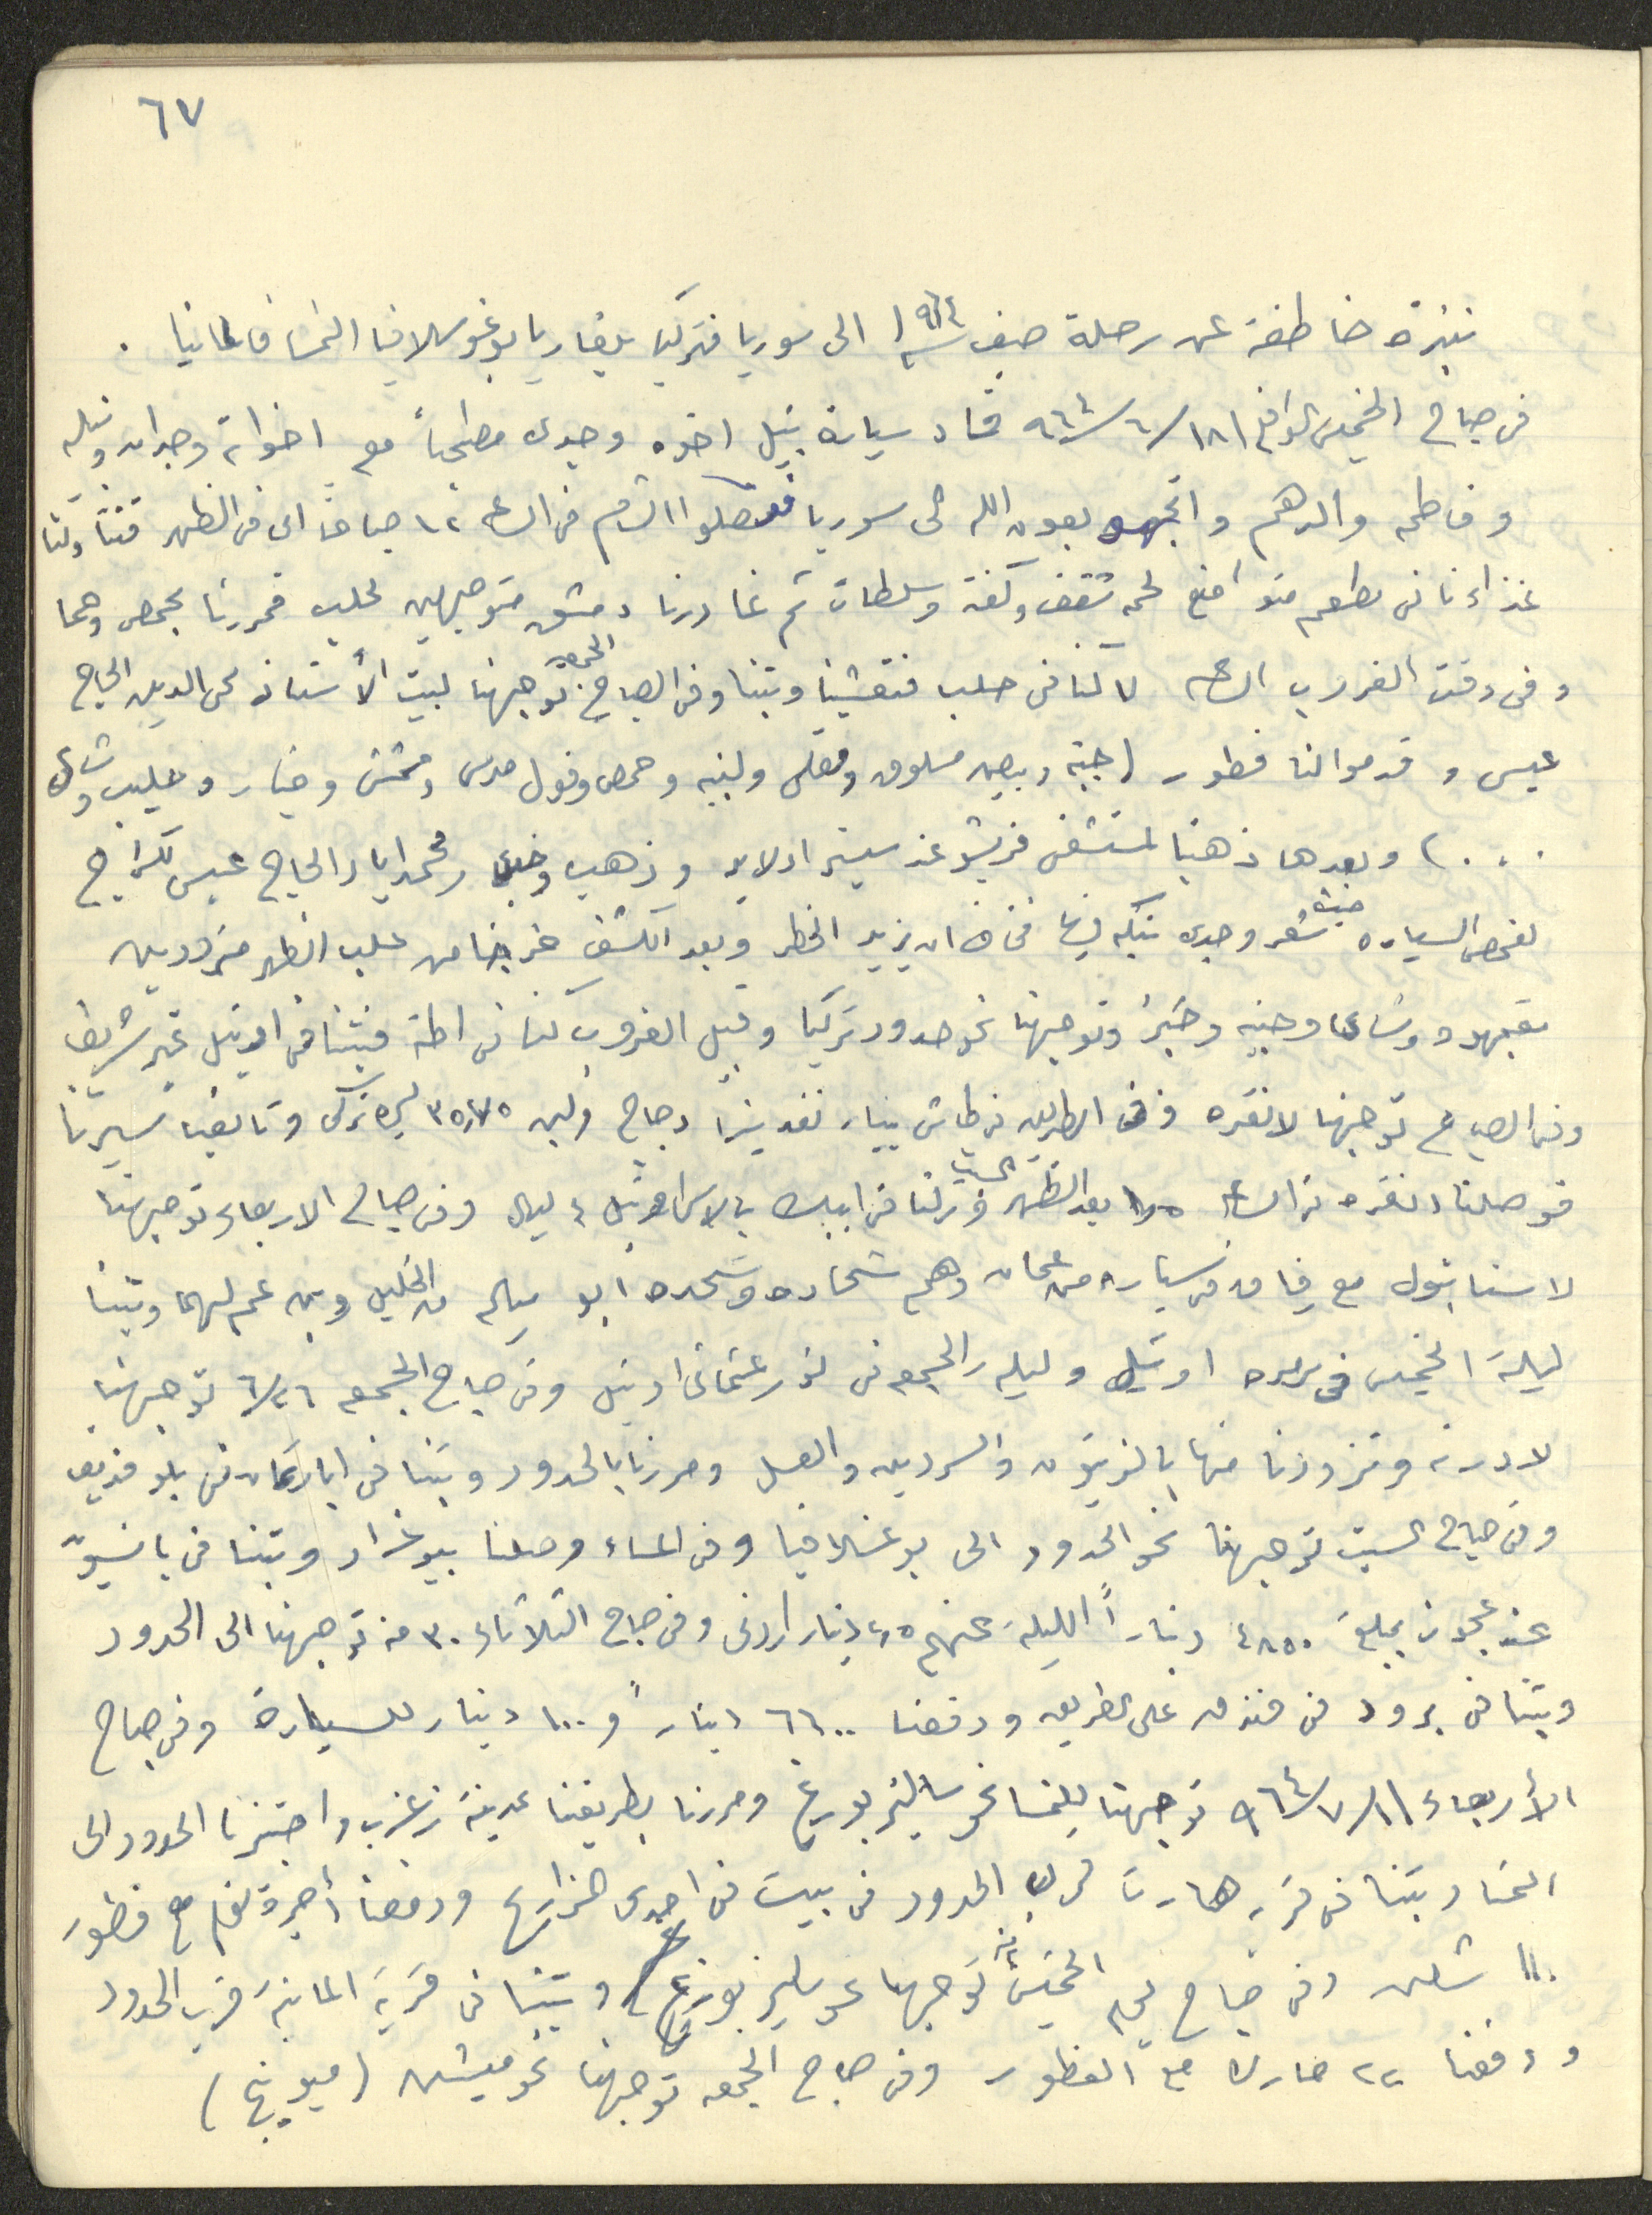 ٦٧
نبذة خاطفة عن رحلة صيف سنة ١٩٦٤ الى سوريا فتركيا بلغاريا يوغوسلافيا النمسا فالمانيا .
في صباح الخميس الواقع ١٨/٦/٩٦٤ قاد سيارة نبيل اخوه وجدي مصطحباً مع اخواته وجدان ونبيله
وفاطمه والدهم واتجهوا بعون الله الى سوريا فوصلوا الشام في الساعه ١٢ صباحاً اي في الظهر فتناولنا
غذاءنا في مطعم متواضع لحمه شقف وكفته وسلطات ثم غادرنا دمشق متوجهين لحلب فمررنا بحمص وحما
وفي وقت الغروب الساعه ٧ كنا في حلب فتعشينا وبتنا وفي الصباح الجمعة توجهنا لبيت الأستاذ محي الدين الحاج
عيسى وقدموا لنا فطور (جبنه وبيض مسلوق ومقلى ولبنه وحمص وفول مدمس ومشمش وخيار وحليب وشاي
. . . ) وبعدها ذهبنا لمستشفى فريشو عند سيتر اولايو وذهب وجدي ومحمد اياد الحاج عيسى لكراج
لفحص السياره حيث شعر وجدي بتكه فيها فخاف ان يزيد الخطر وبعد الكشف خرجنا من حلب الظهر مزودين
بقهوه وشاي وجبنه وخبز وتوجهنا نحو حدود تركيا وقبيل الغروب كنا في اطنة فبتنا في اوتيل غير شريف
وفي الصباح توجهنا لانقره وفي الطريق دجاج ولبن ٣٥٫٧٥ ليره تركي وتابعنا سيرنا
فوصلنا انقره في الساعه بعد الظهر السبت ونزلنا في بالاس اوتيل ٤ ليال وفي صباح الاربعاء توجهنا
لاستانبول مع رفاق في سياره من عمان وهم شحاده وشحده ابو مياله من الخليل وبن عم لهما وبتنا
ليلة الخميس في اوتيل وليله الجمعه في نور عثماني اوتيل وفي صباح الجمعه ٢٦/٦ توجهنا
لادرنه وتزودنا منها بالزيتون والسردين والعسل ومررنا بالحدود وبتنا في ابارتمان في بلوفديف
وفي صباح السبت توجهنا نحو الحدود الى يوغسلافيا وفي المساء وصلنا بيوغراد وبتنا في بانسيون
عند عجوز بمبلغ ٤٨٥٠ ديناراً الليلة عنهم ٢٫٥ دينار اردني وفي صباح الثلاثاء ٣٠ منه توجهنا الى الحدود
وبتنا في برود في فندق على الطريق ودفعنا ٦٦٠٠ ديناراً و ١٠٠ دينار للسيارة وفي صباح
الأربعاء ١/٧/٩٦٤ توجهنا للنمسا نحو سالتزبورغ ومررنا بطريقنا بمدينة زغرب واجتزنا الحدود الى
النمسا وبتنا في قريه قرب الحدود في بيت في احدى المزارع ودفعنا أجرة نوم مع فطور
١١٠ شلن وفي صباح يوم الخميس توجهنا نحو سالزبورغ وبتنا في قرية المانية قرب الحدود
ودفعنا ٢٢ مارك مع الفطور وفي صباح الجمعه توجهنا نحو ميونشن (ميونخ)